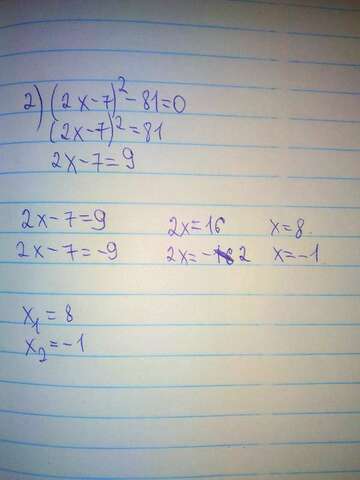 2) (2x-7)²-81=0
(2x-7)²=81
2x-7=9
2x-7=9 2x=16 x=8
2x-7=-9 2x=-2 x=-1
x₁=8
x₂=-1